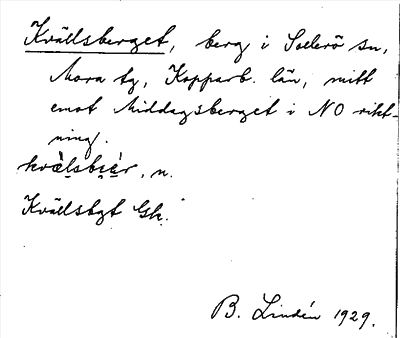 Kvällsberget, berg i Sollerö sn,
Mora tg, Kopparb. län, mitt
emot Middagsberget i NO rikt-
ning.
n.
Kvällsbgt Gk.
B. Lindén 1929.